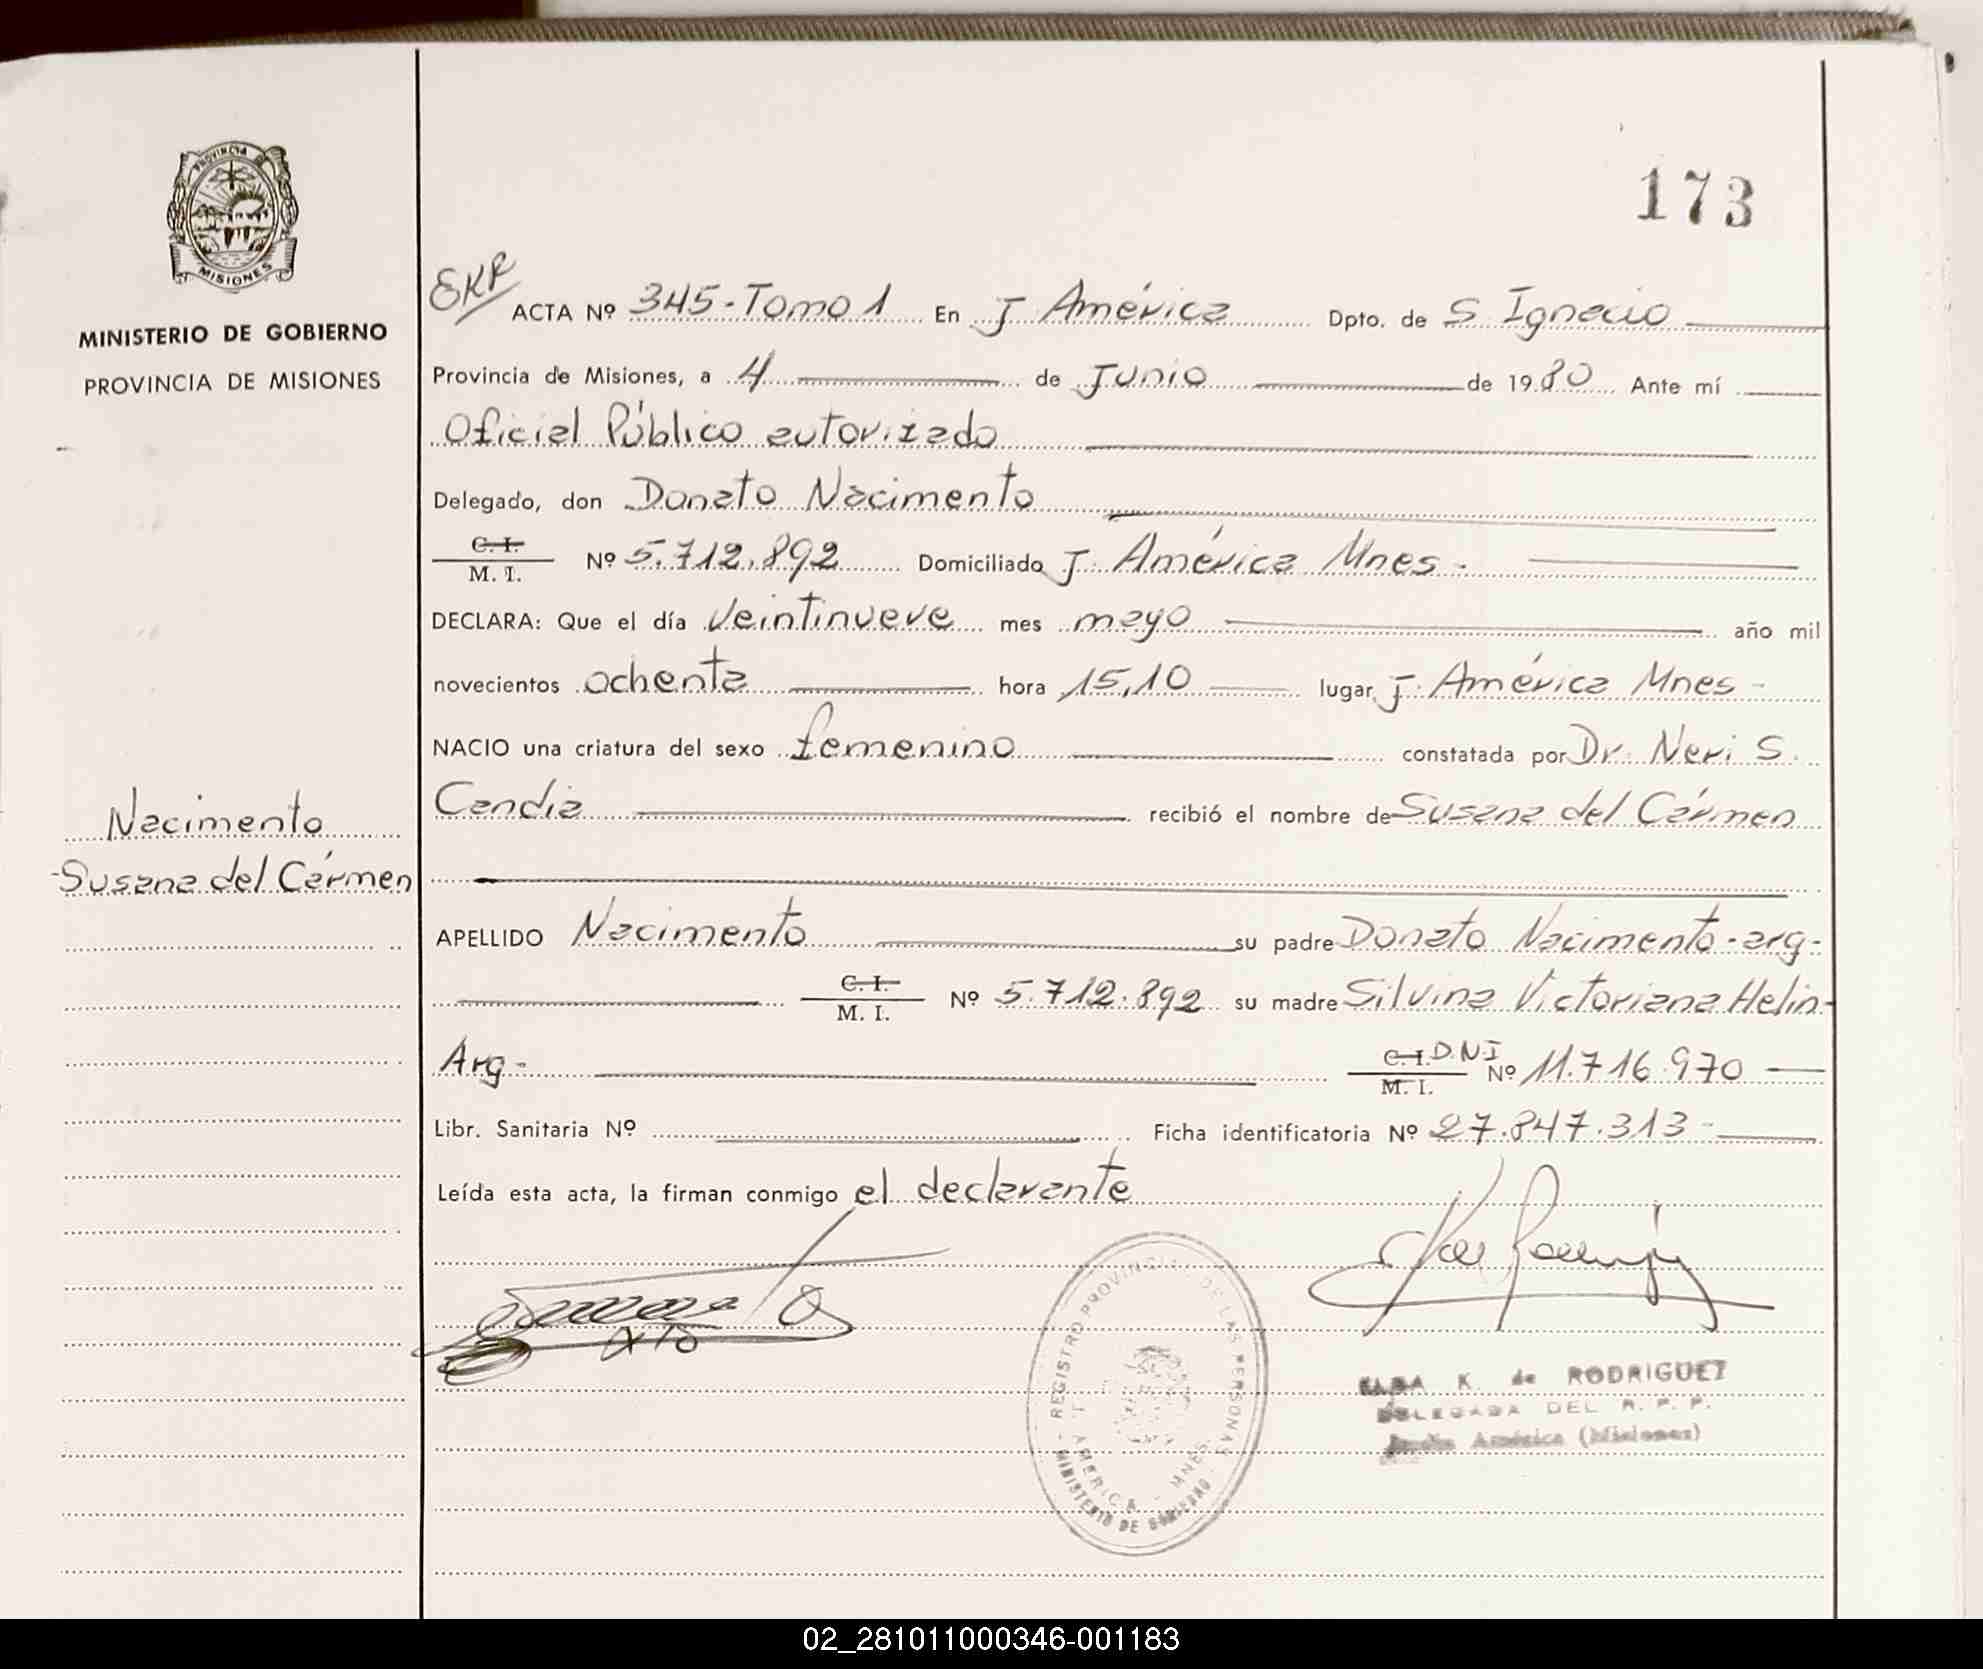 173
PROVINCIA DE
MISIONES
MINISTERIO DE GOBIERNO
PROVINCIA DE MISIONES
EKR ACTA Nº 345-Tomo 1 En J América Dpto. de S Ignacio
Provincia de Misiones, a 4 de Junio de 1980 Ante mí
Oficial Público autorizado
Delegado, don Donato Nacimento
C. I.
M. I. Nº 5.712.892 Domiciliado J. América Mnes-
DECLARA: Que el día veintinueve mes mayo año mil
novecientos ochenta hora 15,10 lugar J. América Mnes-
NACIO una criatura del sexo femenino constatada por Dr. Neri S.
Candia recibió el nombre de Susana del Cármen
Nacimento
-Susana del Cármen
APELLIDO Nacimento su padre Donato Nacimento-arg-
C. I.
M. I. Nº 5.712.892 su madre Silvina Victoriana Helin-
Arg- C. I. D.N.I
M. I. Nº 11.716.970
Libr. Sanitaria Nº Ficha identificatoria Nº 27.847.313-
Leída esta acta, la firman conmigo el declarante
REGISTRO PROVINCIAL DE LAS PERSONAS
J. AMERICA - MNES.
MINISTERIO DE GOBIERNO
ELBA K. de RODRIGUEZ
DELEGADA DEL R. P. P.
Jardín América (Misiones)
02_281011000346-001183